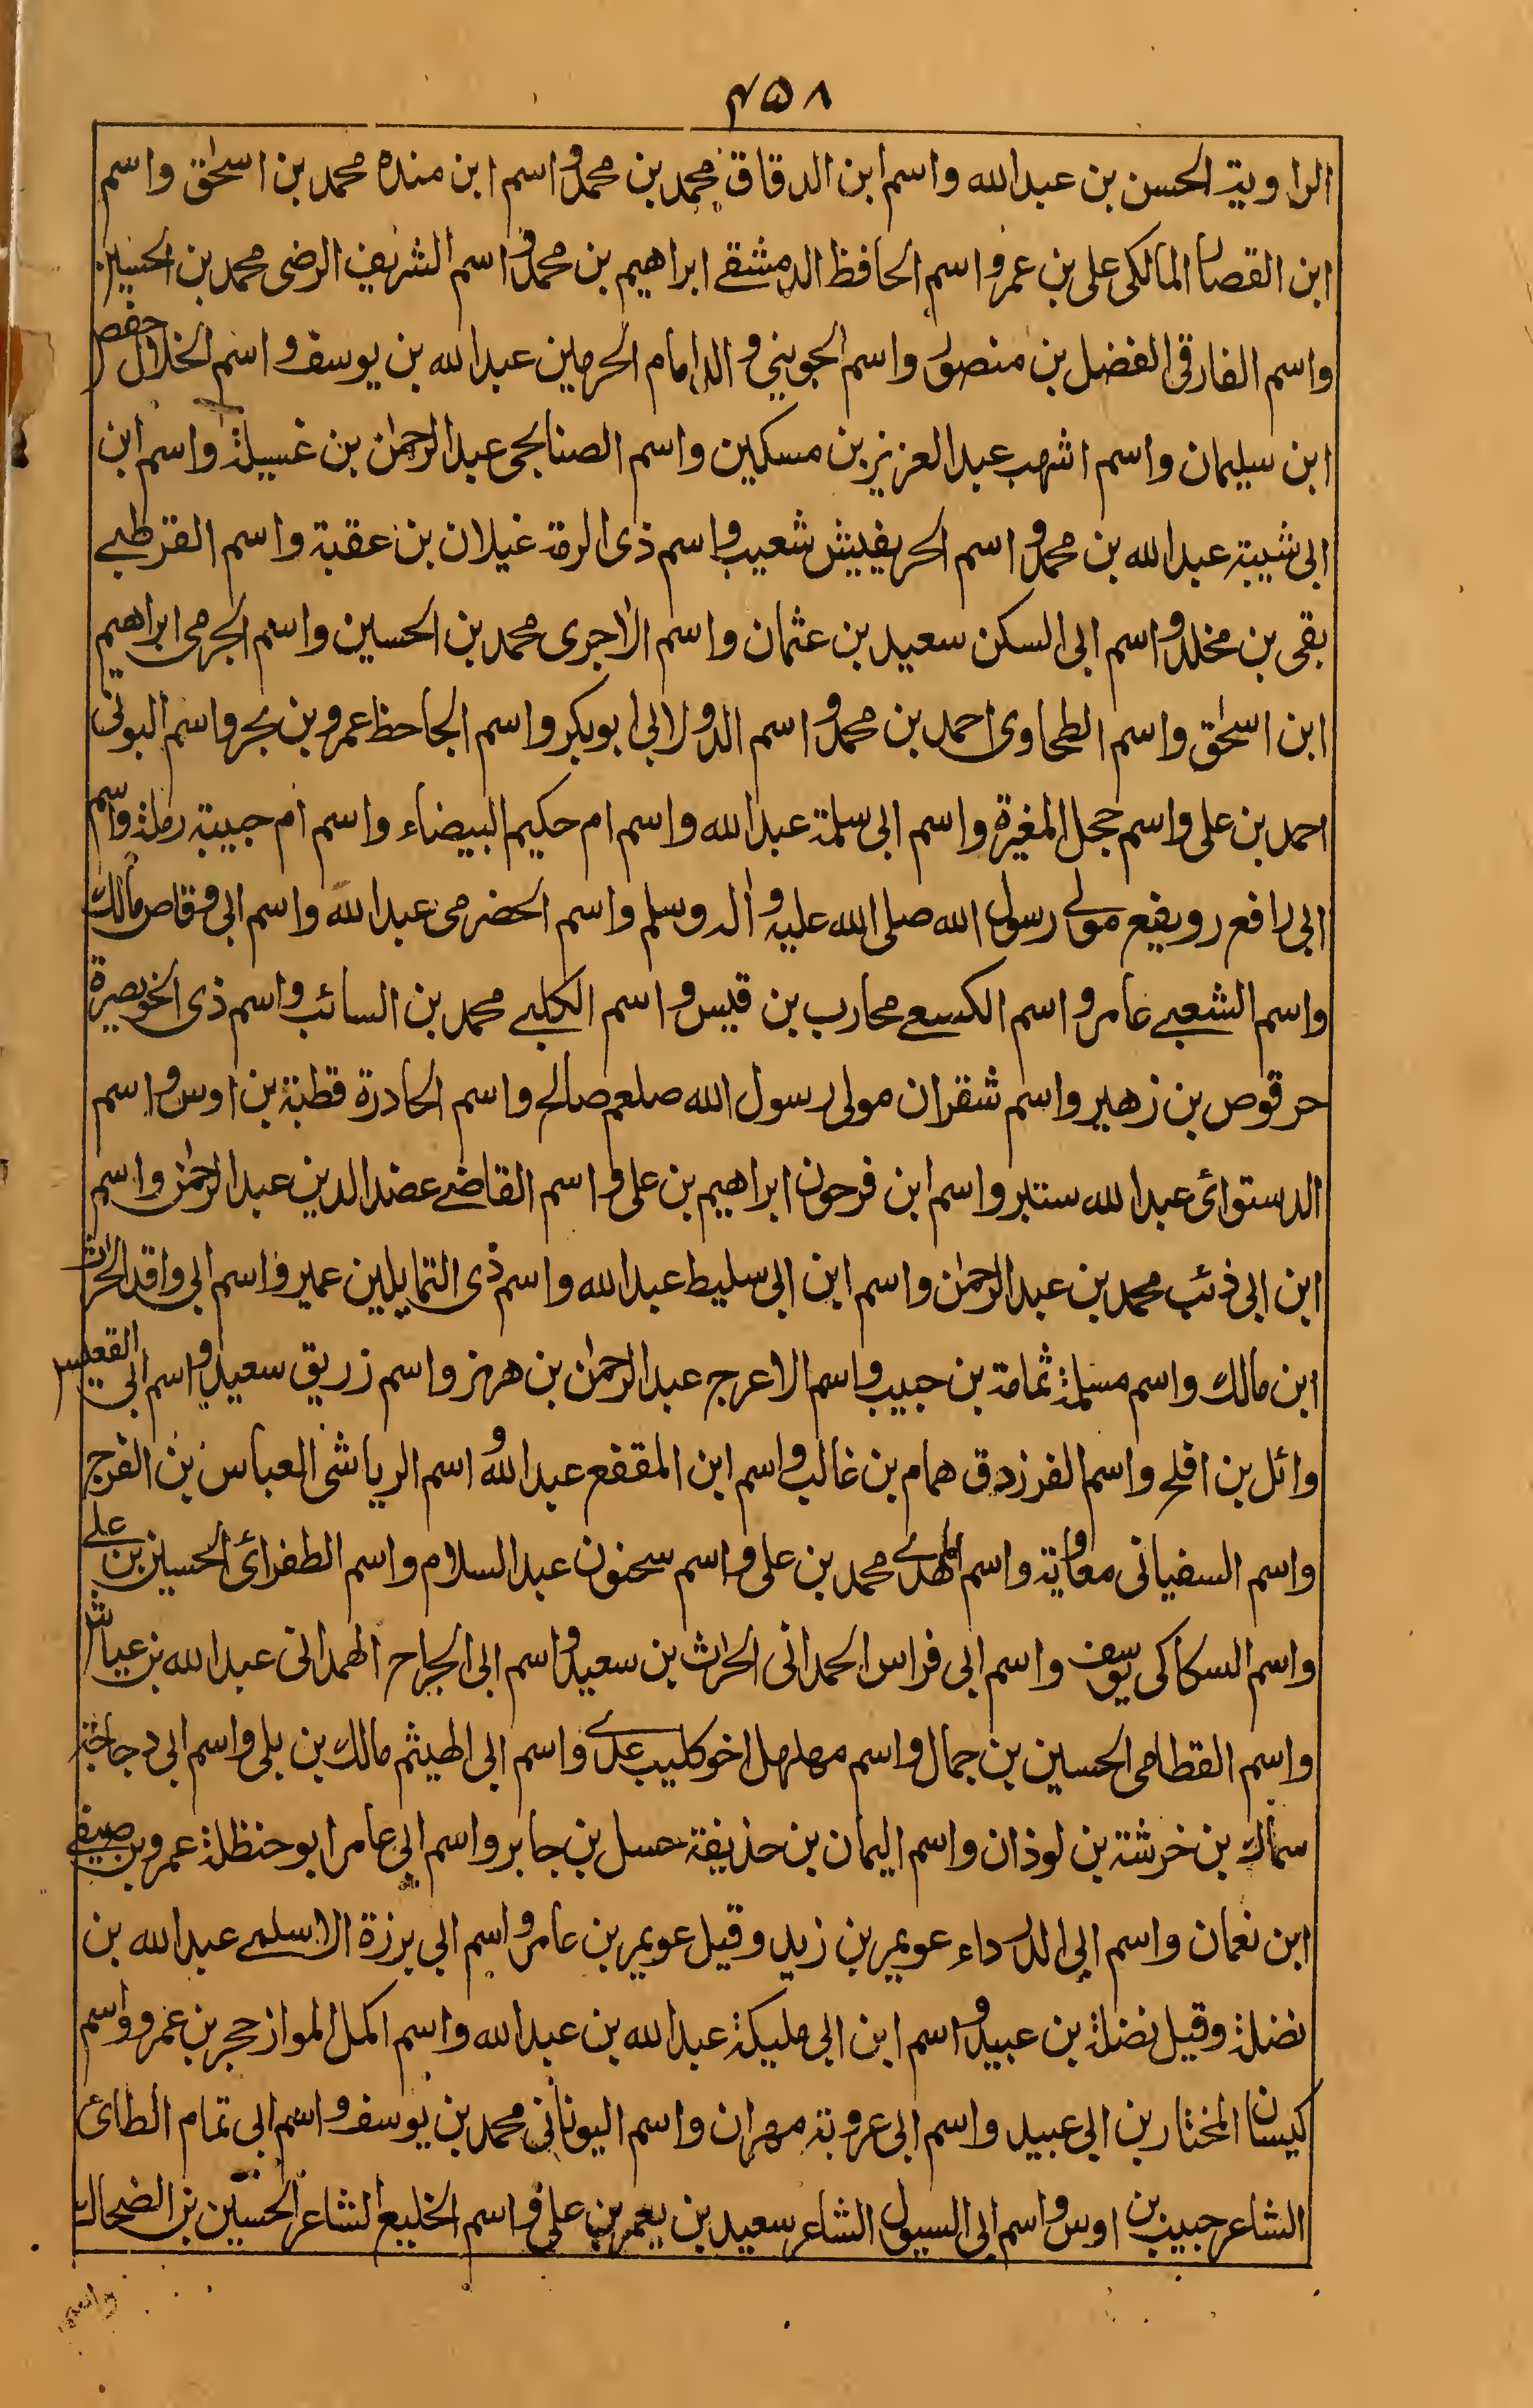 ۴۵۸
الراوية الحسن بن عبدالله واسم ابن الدقاق محمد بن محمد واسم ابن منده محمد بن اسحٰق واسم
ابن القصار المالكى على بن عمرو اسم الحافظ الدمشقے ابراهيم بن محمد واسم الشريف الرضى محمد بن الحسين
واسم الفارقى الفضل بن منصور واسم الجوينى والد امام الحرمين عبدالله بن يوسف واسم الخلال حفص
ابن سليمان واسم اشهب عبدالعزيز بن مسكين واسم الصنابحى عبدالرحمٰن بن غسيلة واسم ابن
ابى شيبة عبدالله بن محمد واسم الحريفيش شعيب واسم ذى الرمة غيلان بن عقبة واسم القرطبے
بقى بن مخلد واسم ابى السكن سعيد بن عثمان واسم الاٰجرى محمد بن الحسين واسم الجرمى ابراهيم
ابن اسحٰق واسم الطحاوى احمد بن محمد واسم الدولابى ابوبكر واسم الجاحظ عمرو بن بحر واسم البونى
احمد بن على واسم حجل المغيرة واسم ابى سلمة عبدالله واسم ام حكيم البيضاء واسم ام حبيبة رملة واسم
ابى رافع رويفع مولے رسول الله صلى الله عليه واٰله وسلم واسم الحضرمى عبدالله واسم ابى وقاص مالك
واسم الشعبے عامر واسم الكسعے محارب بن قيس واسم الكلبے محمد بن السائب واسم ذى الخويصرة
حرقوص بن زهير واسم شقران مولى رسول الله صلعم صالح واسم الحادرة قطبة بن اوس واسم
الدستوائى عبدالله سنبر واسم ابن فرحون ابراهيم بن على واسم القاضے عضدالدين عبدالرحمٰن واسم
ابن ابى ذئب محمد بن عبدالرحمٰن واسم ابن ابى سليط عبدالله واسم ذى التمايلين عمير واسم ابى واقد الحرث
ابن مالك واسم مسيلمة ثمامة بن حبيب واسم الاعرج عبدالرحمٰن بن هرمز واسم زريق سعيد واسم ابى القعيس
وائل بن افلح واسم الفرزدق همام بن غالب واسم ابن المقفع عبدالله واسم الرياشى العباس بن الفرج
واسم السفيانى معاوية واسم المهدے محمد بن على واسم سحنون عبدالسلام واسم الطغرائى الحسين بن علے
واسم السكاكى يوسف واسم ابى فراس الحمدانى الحرث بن سعيد واسم ابى الجراح الهمدانى عبدالله بن عياش
واسم القطامى الحسين بن جمال واسم مهلهل اخو كليب عدے واسم ابى الهيثم مالك بن بلى واسم ابى دجانة
سماك بن خرشة بن لوذان واسم اليمان بن حذيفة حسل بن جابر واسم ابى عامر ابو حنظلة عمرو بن صيفے
ابن نعمان واسم ابى الدرداء عويمر بن زيد وقيل عويمر بن عامر واسم ابى برزة الاسلمے عبدالله بن
نضلة وقيل نضلة بن عبيد واسم ابن ابى مليكة عبدالله بن عبدالله واسم اكمل المواز حجر بن عمرو واسم
كيسان المختار بن ابى عبيد واسم ابى عروبة مهران واسم اليونانى محمد بن يوسف واسم ابى تمام الطائى
الشاعر حبيب بن اوس واسم ابى السيول الشاعر سعيد بن يعمر بن على واسم الخليع الشاعر الحسين بن الضحاك
واسم